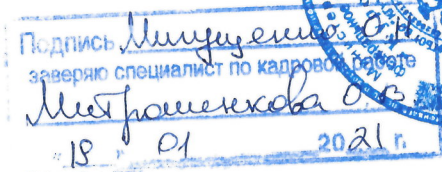 Подпись Мищенко О.Н.
заверяю специалист по кадровой работе
Митрошенкова О.В.
"19" 01 2021 г.